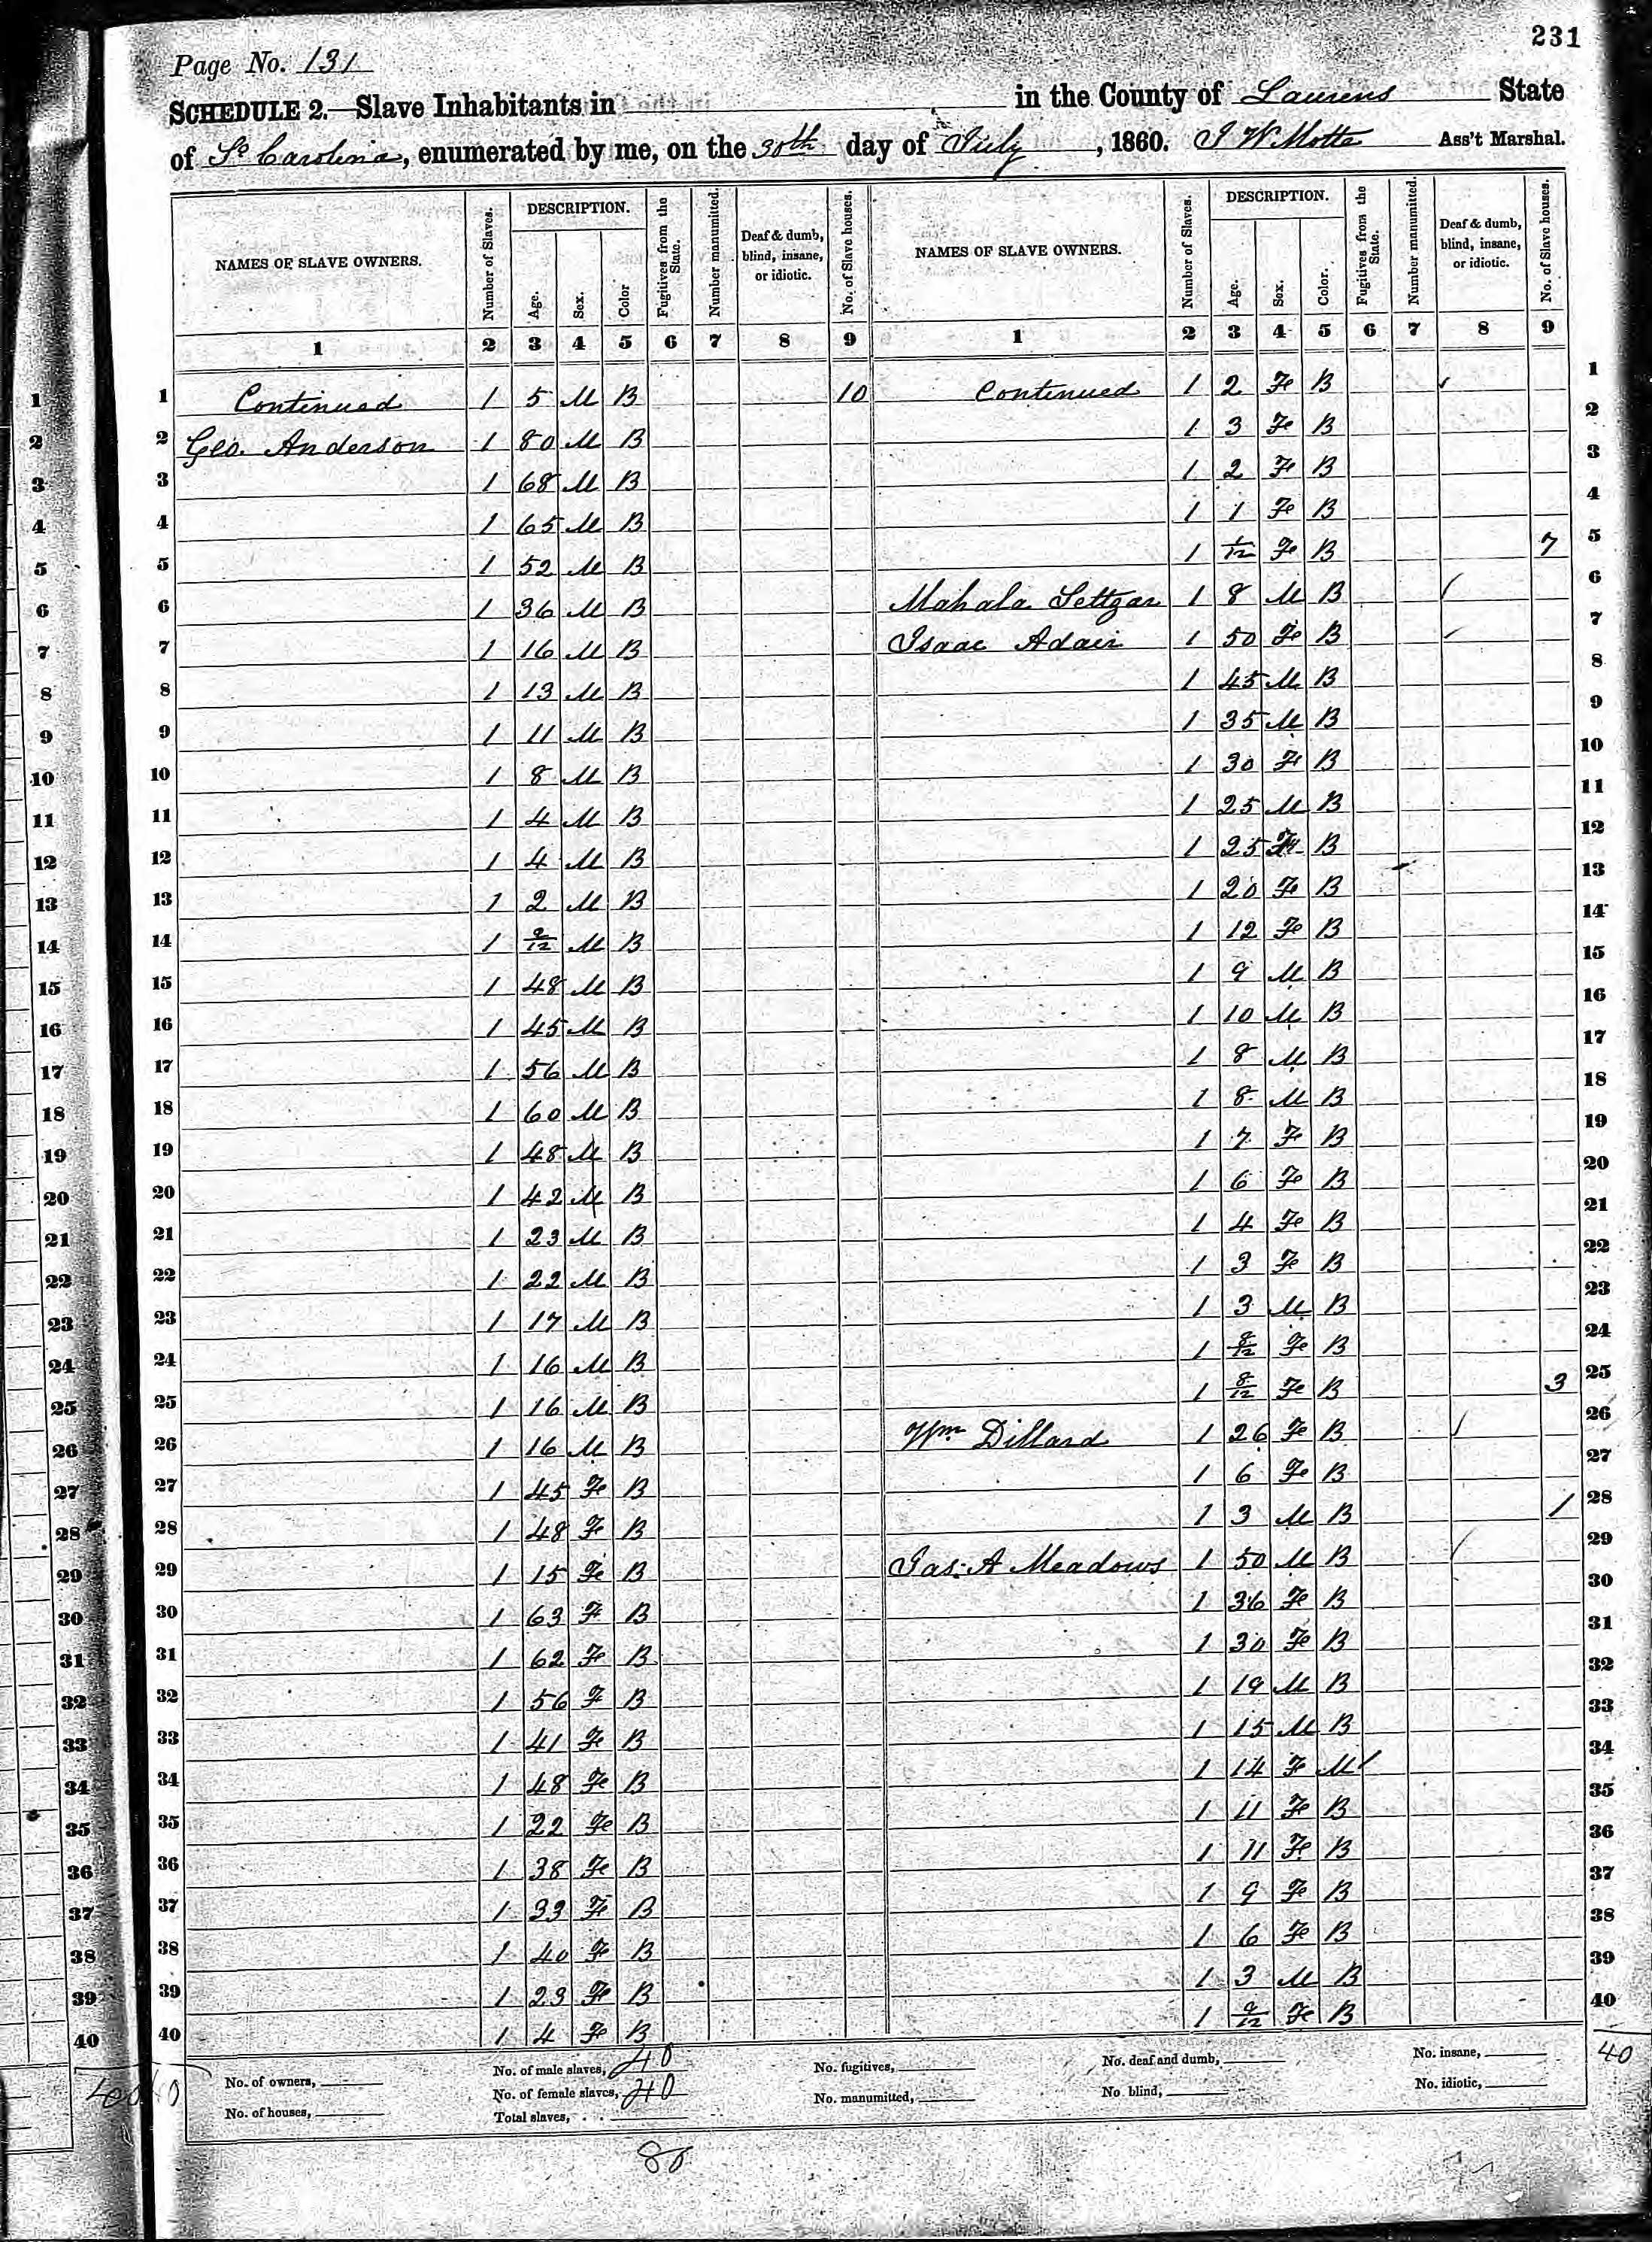 231
Page No. 131
SCHEDULE 2.—Slave Inhabitants in in the County of Laurens State
of So Carolina, enumerated by me, on the 30th day of July, 1860. J W Motte Ass't Marshal.
NAMES OF SLAVE OWNERS. Number of Slaves. DESCRIPTION. Age. Sex. Color Fugitives from the State. Number manumitted. Deaf & dumb, blind, insane, or idiotic. No. of Slave houses. NAMES OF SLAVE OWNERS. Number of Slaves. DESCRIPTION. Age. Sex. Color. Fugitives from the State. Number manumitted. Deaf & dumb, blind, insane, or idiotic. No. of Slave houses.
1 2 3 4 5 6 7 8 9 1 2 3 4 5 6 7 8 9
1 Continued 1 5 M B 10 Continued 1 2 Fe B 1
2 Geo. Anderson 1 80 M B 1 3 Fe B 2
3 1 68 M B 1 2 Fe B 3
4 1 65 M B 1 1 Fe B 4
5 1 52 M B 1 1/12 Fe B 7 5
6 1 36 M B Mahala Settzar 1 8 M B 6
7 1 16 M B Isaac Adair 1 50 Fe B 7
8 1 13 M B 1 45 M B 8
9 1 11 M B 1 35 M B 9
10 1 8 M B 1 30 Fe B 10
11 1 4 M B 1 25 M B 11
12 1 4 M B 1 25 Fe B 12
13 1 2 M B 1 20 Fe B 13
14 1 9/12 M B 1 12 Fe B 14
15 1 48 M B 1 9 M B 15
16 1 45 M B 1 10 M B 16
17 1 56 M B 1 8 M B 17
18 1 60 M B 1 8 M B 18
19 1 48 M B 1 7 Fe B 19
20 1 42 M B 1 6 Fe B 20
21 1 23 M B 1 4 Fe B 21
22 1 22 M B 1 3 Fe B 22
23 1 17 M B 1 3 M B 23
24 1 16 M B 1 8/12 Fe B 24
25 1 16 M B 1 8/12 Fe B 3 25
26 1 16 M B Wm Dillard 1 26 Fe B 26
27 1 45 Fe B 1 6 Fe B 27
28 1 48 Fe B 1 3 M B 1 28
29 1 15 Fe B Jas. A Meadows 1 50 M B 29
30 1 63 Fe B 1 36 Fe B 30
31 1 62 Fe B 1 30 Fe B 31
32 1 56 Fe B 1 19 M B 32
33 1 41 Fe B 1 15 M B 33
34 1 48 Fe B 1 14 Fe M 34
35 1 22 Fe B 1 11 Fe B 35
36 1 38 Fe B 1 11 Fe B 36
37 1 33 Fe B 1 9 Fe B 37
38 1 40 Fe B 1 6 Fe B 38
39 1 23 Fe B 1 3 M B 39
40 1 4 Fe B 1 9/12 Fe B 40
No. of owners, No. of male slaves, 40 No. fugitives, No. deaf and dumb, No. insane, 40
No. of houses, No. of female slaves, 40 No. manumitted, No blind, No. idiotic,
Total slaves,
80